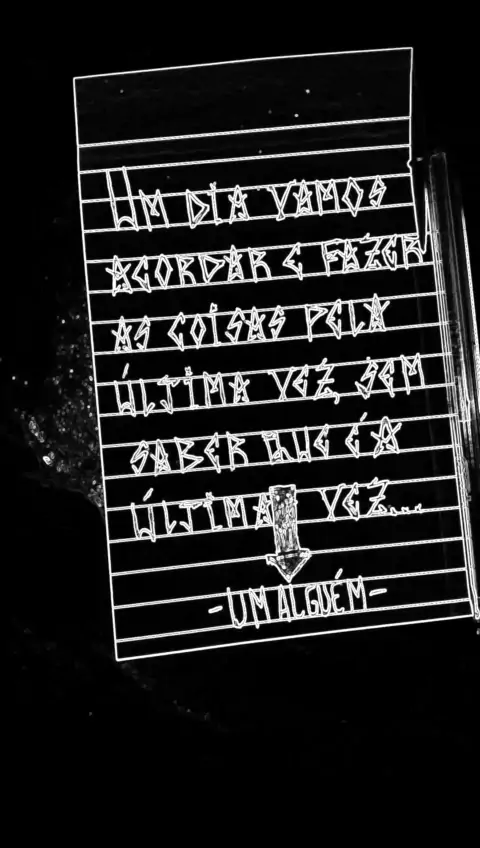 Um DiA VAMOS
ACORDAR E FAZER
AS COiSAS PELA
ÚLTIMA VEZ, SEM
SABER QUE É A
ÚLTIMA VEZ...
-UM ALGUÉM-